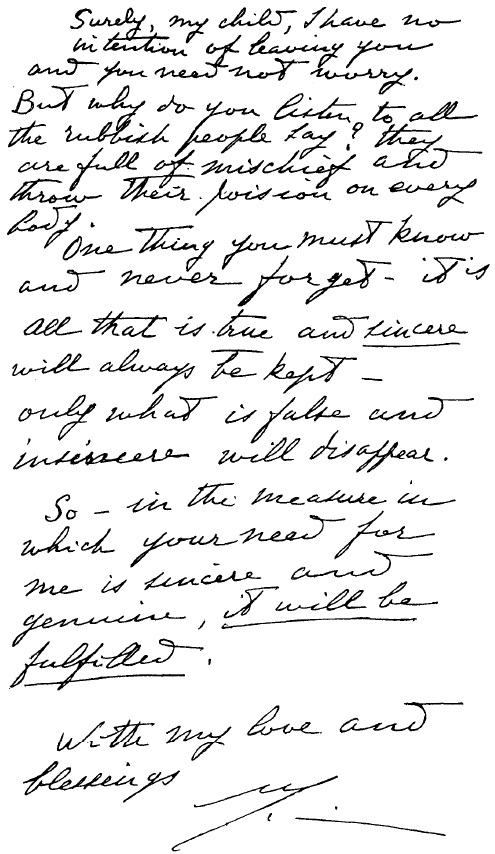 Surely, my child, I have no
intention of leaving you
and you need not worry.
But why do you listen to all
the rubbish people say? they
are full of mischief and
throw their poision on every
body.
One thing you must know
and never forget - it is
all that is true and sincere
will always be kept -
only what is false and
insincere will disappear.
So - in the measure in
which your need for
me is sincere and
genuine, it will be
fulfilled.
With my love and
blessings